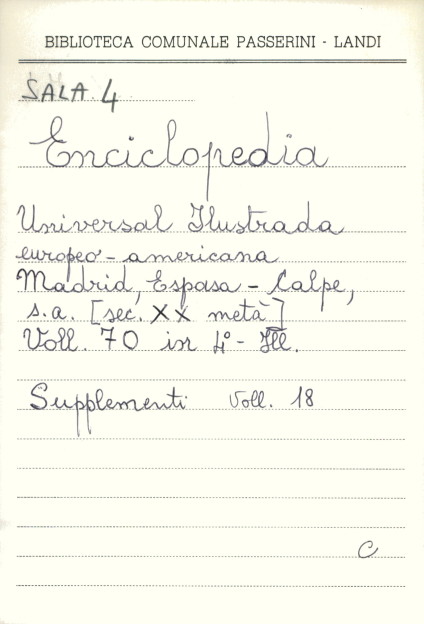 BIBLIOTECA COMUNALE PASSERINI - LANDI
SALA 4
Enciclopedia
Universal Ilustrada
europeo - americana
Madrid, Espasa - Calpe,
s.a. [sec. XX metà]
Voll. 70 in 4° - Ill.
Supplementi Voll. 18
C